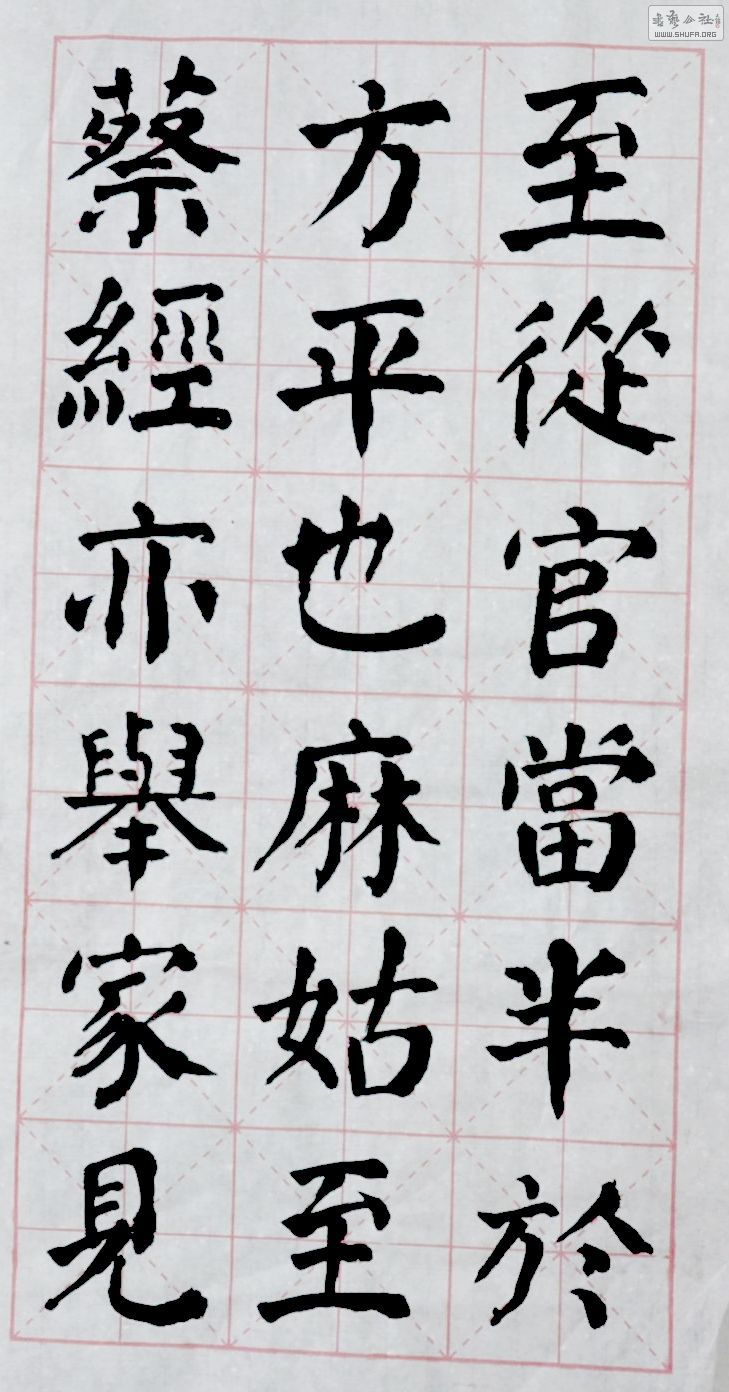 至從官當半於
方平也麻姑至
蔡經亦舉家見
WWW.SHUFA.ORG